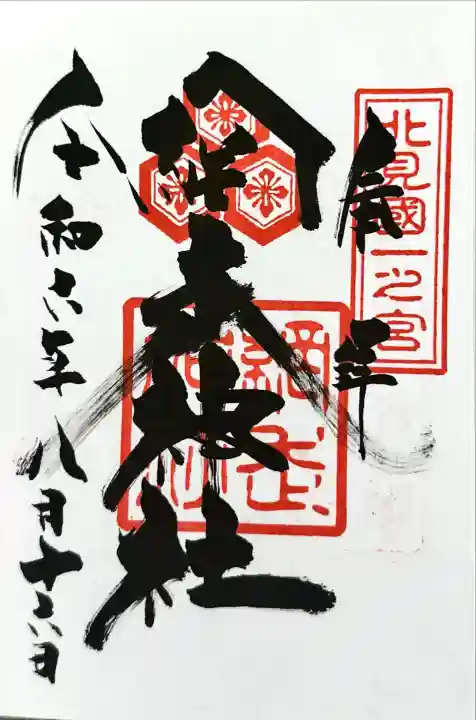 北見國一之宮
奉拝
網走神社
網走
神社
令和六年八月十六日